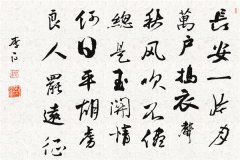 長安一片月
萬戶搗衣聲
秋風吹不盡
總是玉關情
何日平胡虜
良人罷遠征